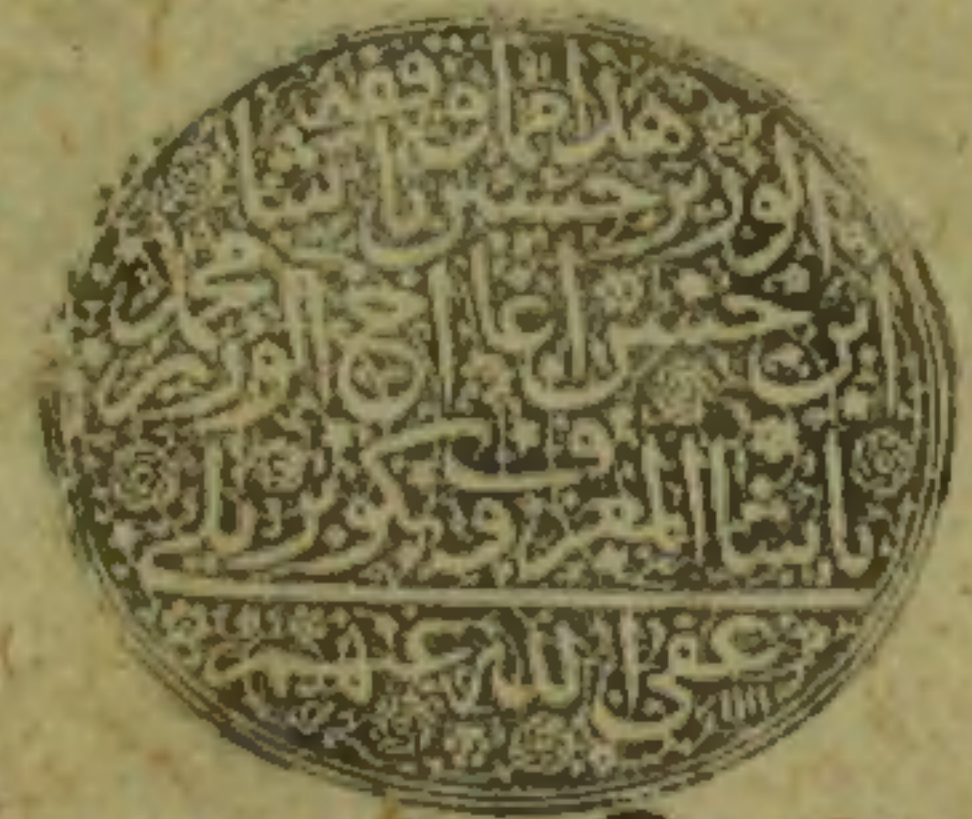 هذا ما وقفه
الوزير حسين باشا
ابن حسن اغا اخ الوزير محمد
باشا المعروف بكوبريلي
عفى الله عنهم
١١١١